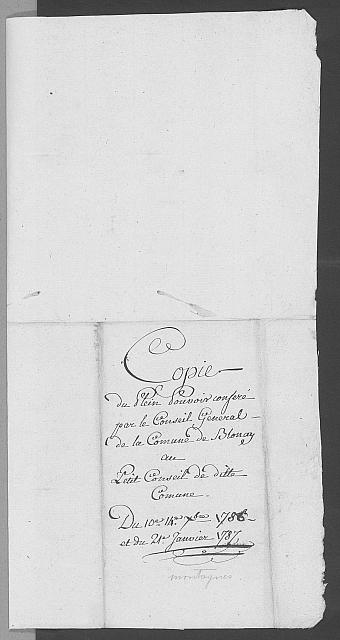 Copie
du Plein Pouvoir conferé
par le Conseil General
de la Comune de Blonay
au
Petit Conseil de ditte
Comune.
Du 10e 14e 7bre 1786
et du 21e Janvier 1787
montagnes